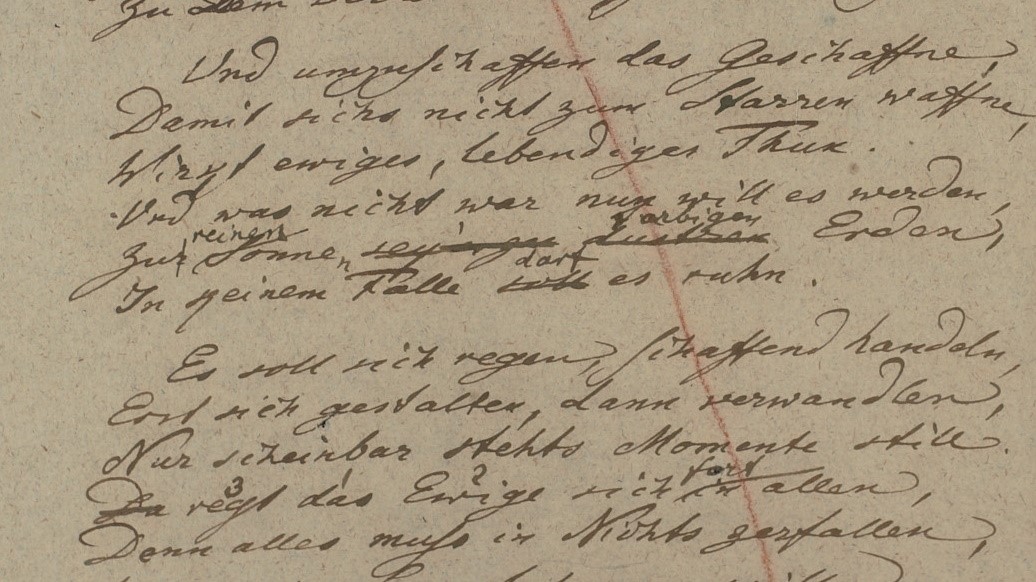 Zu dem
Und umzuschaffen das Geschaffne,
Damit sichs nicht zum Starren waffne,
Wirkt ewiges, lebendiges Thun.
Und was nicht war nun will es werden,
reinen farbigen
Zur Sonnen Erden,
darf
In keinem Falle soll es ruhn.
Es soll sich regen, schaffend handeln,
Erst sich gestalten, dann verwandeln,
Nur scheinbar stehts Momente still.
3 1 2 fort
Da regt das Ewige sich in allen,
Denn alles muss in Nichts zerfallen,